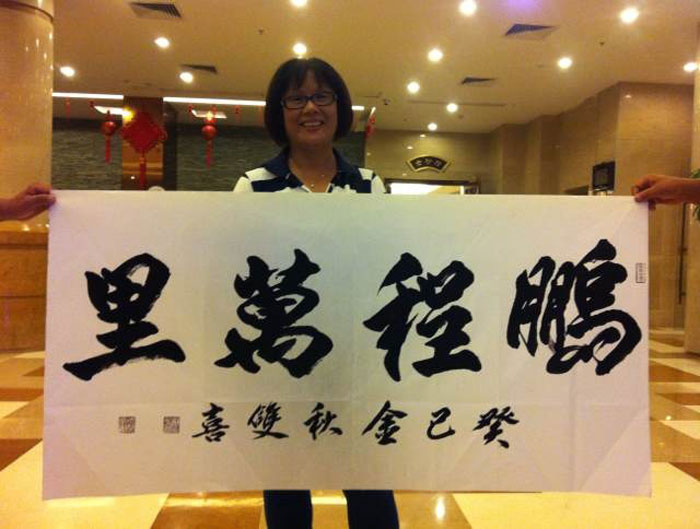 鵬程萬里
癸巳金秋雙喜